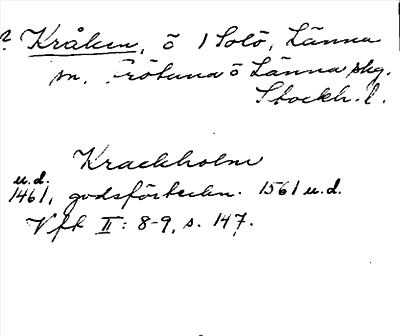 ? Kråken, ö i Solö, Länna
sn. Frötuna o Länna skg.
Stockh. l.
Krackholm
u.d.
1461, godsförteckn. 1561 u.d.
Vft II: 8-9, s. 147.